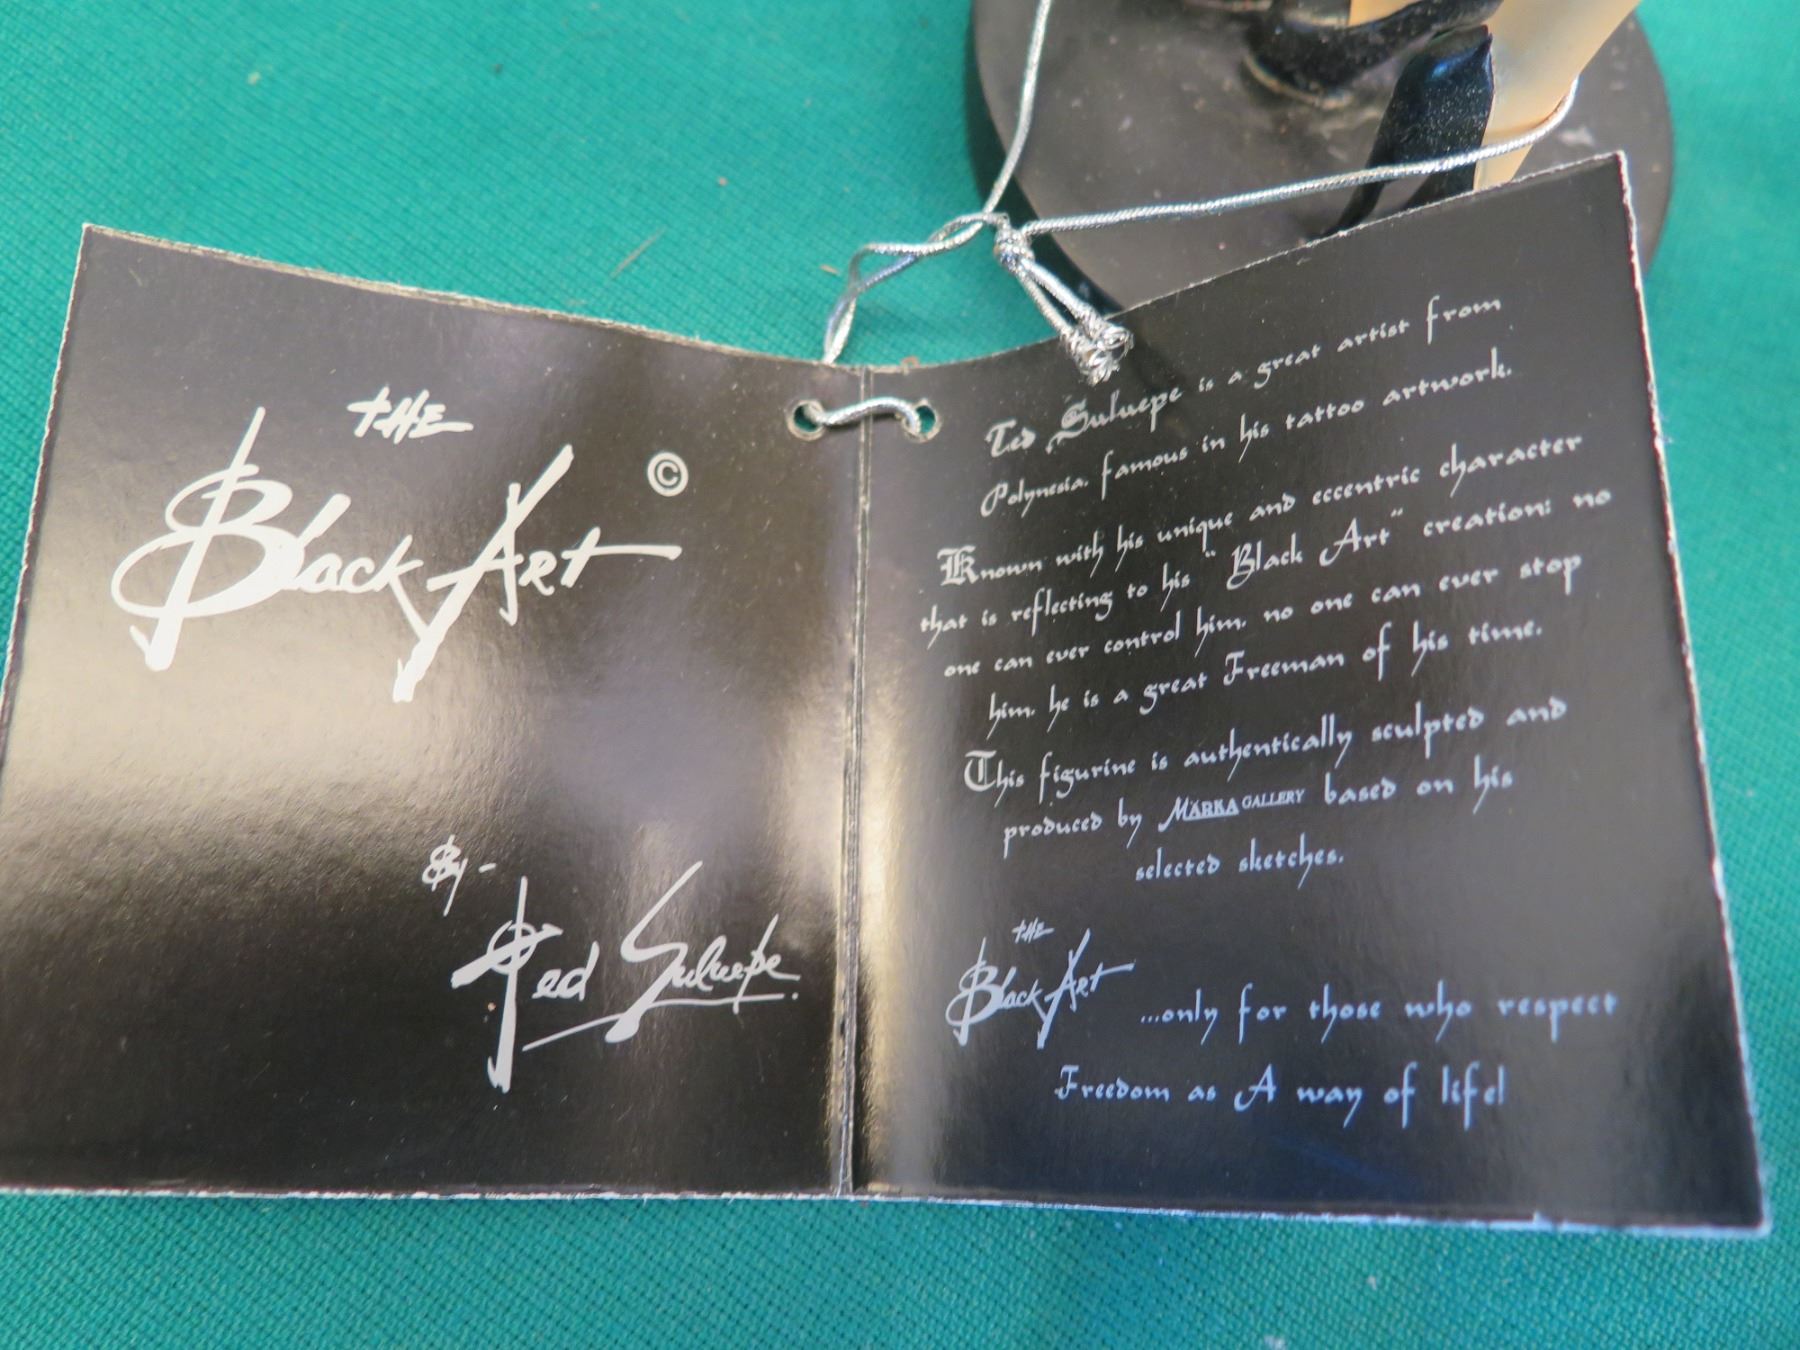 THE
Black Art ©
By -
Ted Suluepe.
Ted Suluepe is a great artist from
Polynesia, famous in his tattoo artwork.
Known with his unique and eccentric character
that is reflecting to his "Black Art" creation: no
one can ever control him, no one can ever stop
him, he is a great Freeman of his time.
This figurine is authentically sculpted and
produced by MÄRKA GALLERY based on his
selected sketches.
THE
Black Art ...only for those who respect
Freedom as A way of life!